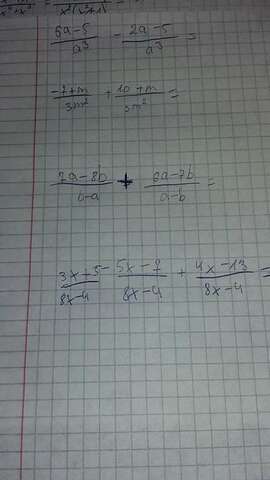 x²(x²+1)
(6a-5)/a³ - (2a-5)/a³ =
(-7+m)/3m² + (10+m)/3m² =
(7a-8b)/(b-a) + (6a-7b)/(a-b) =
(3x+5)/(8x-4) - (5x-7)/(8x-4) + (4x-13)/(8x-4) =